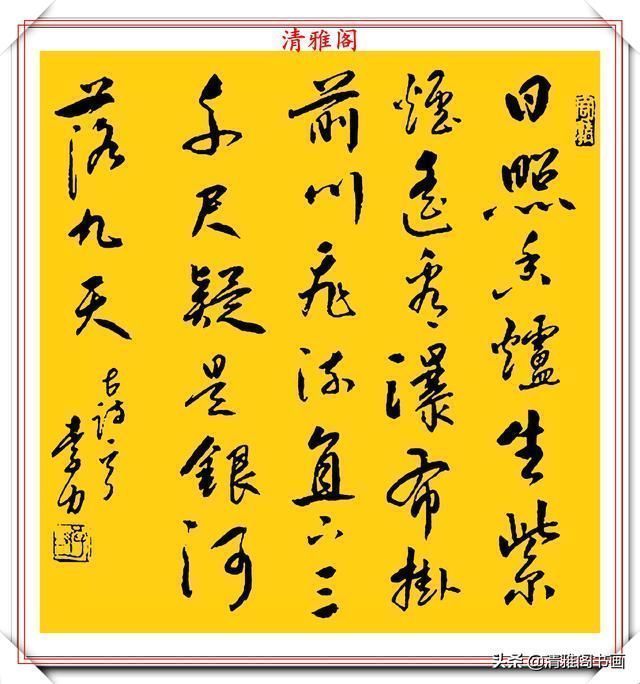 清雅阁
日照香爐生紫
煙遙看瀑布掛
前川飛流直下三
千尺疑是銀河
落九天
古詩一首
李力
头条@清雅阁书画